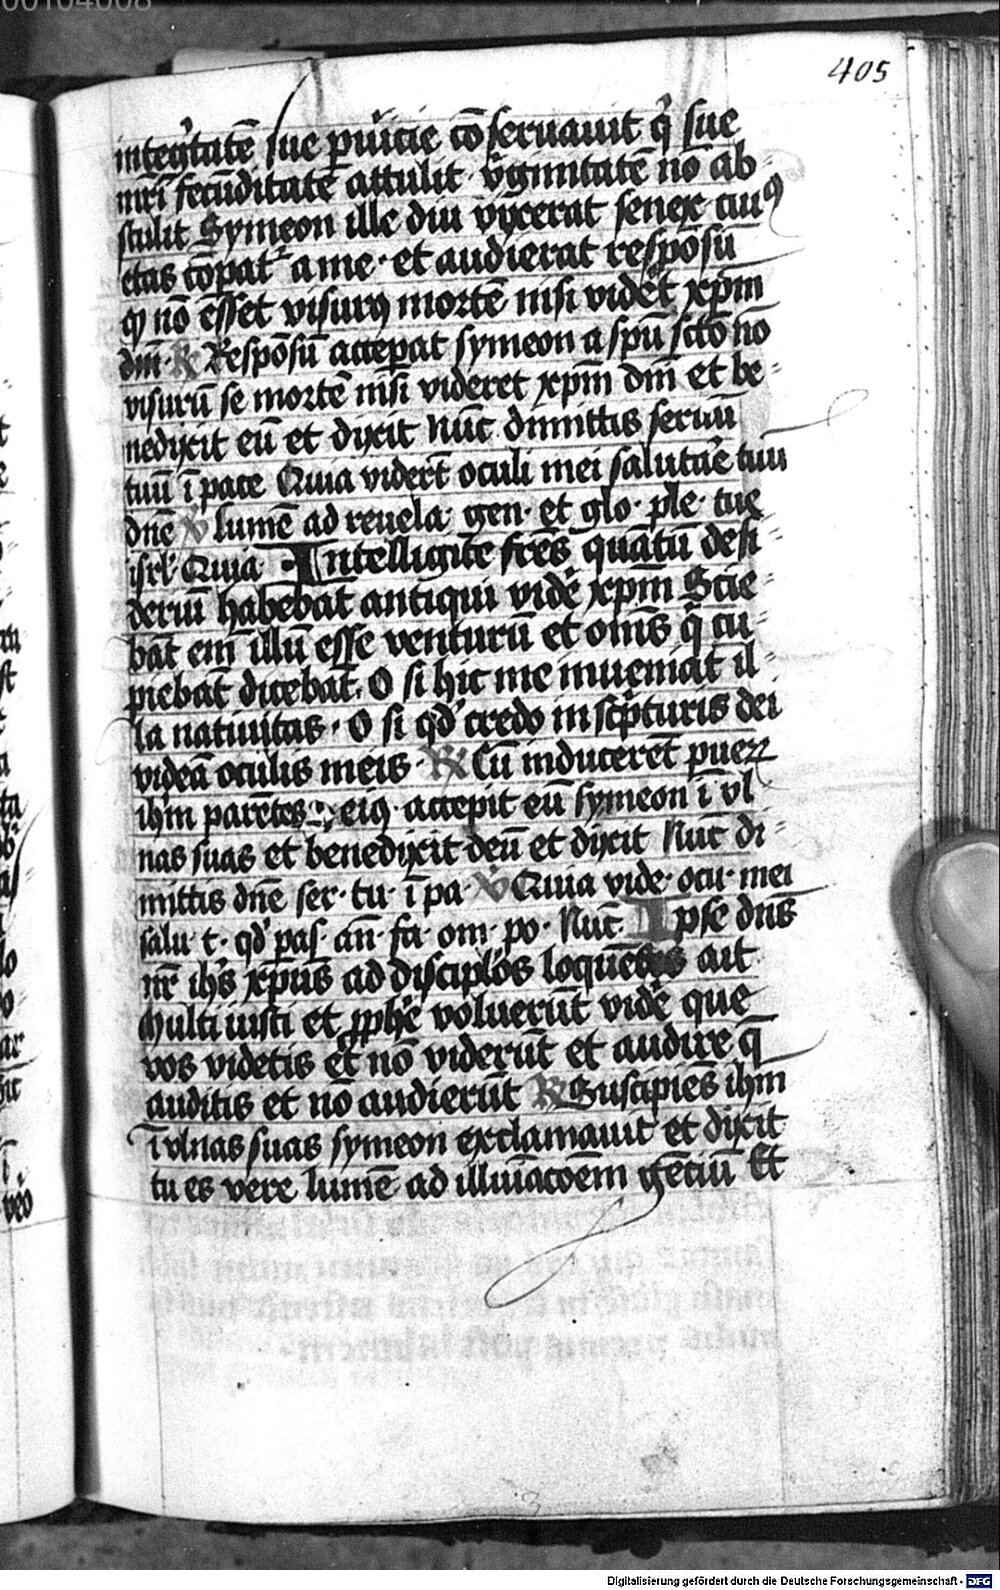 00104008
405
integ'tatē sue pudicie cōseruauit q' sue
mr̄i fecūditatē attulit v'ginitatē nō ab
stulit Symeon ille diu vixerat senex cuiꝰ
etas cōpat' a me et audierat respōsū
qꝫ nō eēt visurꝰ mortē nisi videret xp̄m
dn̄i ℟ Respōsū accepat symeon a spū sctō nō
visurū se mortē nisi videret xp̄m dn̄i et be
nedixit eū et dixit Nūc dimittis seruū
tuū ī pace Quia viderūt oculi mei salutare tuū
dn̄e ℣ lumē ad reuela· gen· et glo· ple· tue
isrl' Quia Intelligite fr̄es quātū desi
deriū habebāt antiqui vide' xp̄m Scie
bāt em̄ illū esse venturū et om̄s q' cu
piebāt dicebāt O si hic me inueniat il
la natiuitas· O si qd' credo in sc'pturis dei
videā oculis meis ℟ Cū inducerēt pueꝝ
ih̄m parētes eiꝰ accepit eū symeon ī vl
nas suas et benedixit deū et dixit Nūc di
mittis dn̄e ser· tu· ī pa· ℣ Quia vide· ocu· mei
salu· t· qd' pas· an̄· fa· om· po· Nūc Ipse dn̄s
nr̄ ih̄s xp̄us ad discip'los loquēs ait
Multi iusti et ꝓphe' voluerūt vide' que
vos videtis et nō viderūt et audire q̄
auditis et nō audierūt ℟ Suscipiēs ih̄m
ī vlnas suas symeon exclamauit et dixit
tu es vere lumē ad illuīacōem gētiū Et
Digitalisierung gefördert durch die Deutsche Forschungsgemeinschaft - DFG